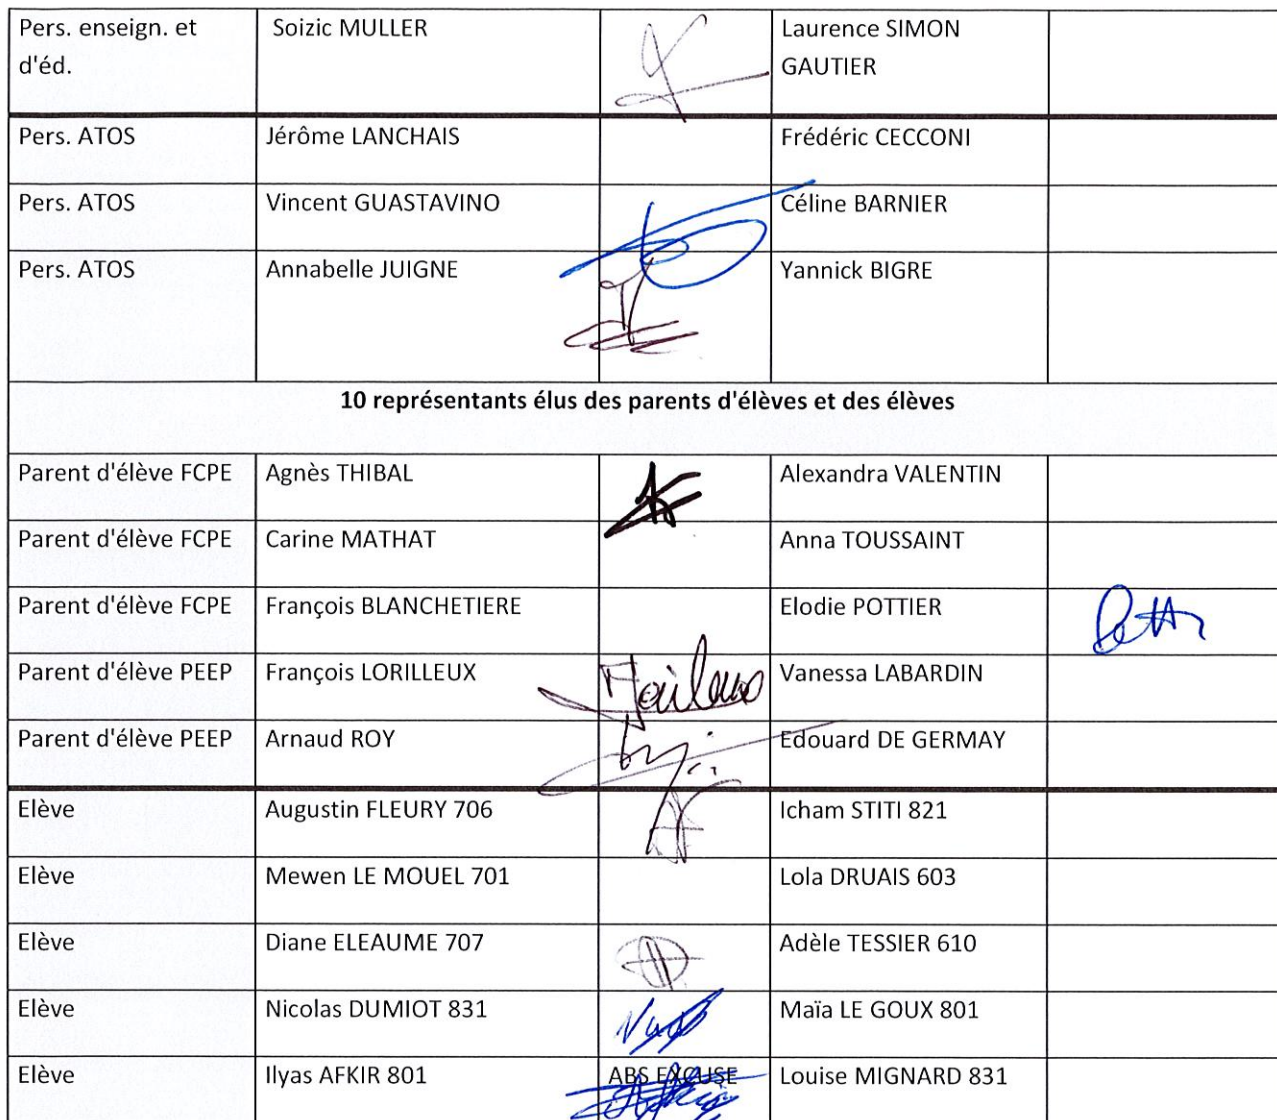 Pers. enseign. et Soizic MULLER Laurence SIMON
d'éd. GAUTIER
Pers. ATOS Jérôme LANCHAIS Frédéric CECCONI
Pers. ATOS Vincent GUASTAVINO Céline BARNIER
Pers. ATOS Annabelle JUIGNE Yannick BIGRE
10 représentants élus des parents d'élèves et des élèves
Parent d'élève FCPE Agnès THIBAL Alexandra VALENTIN
Parent d'élève FCPE Carine MATHAT Anna TOUSSAINT
Parent d'élève FCPE François BLANCHETIERE Elodie POTTIER
Parent d'élève PEEP François LORILLEUX Vanessa LABARDIN
Parent d'élève PEEP Arnaud ROY Edouard DE GERMAY
Elève Augustin FLEURY 706 Icham STITI 821
Elève Mewen LE MOUEL 701 Lola DRUAIS 603
Elève Diane ELEAUME 707 Adèle TESSIER 610
Elève Nicolas DUMIOT 831 Maïa LE GOUX 801
Elève Ilyas AFKIR 801 ABS EXCUSE Louise MIGNARD 831